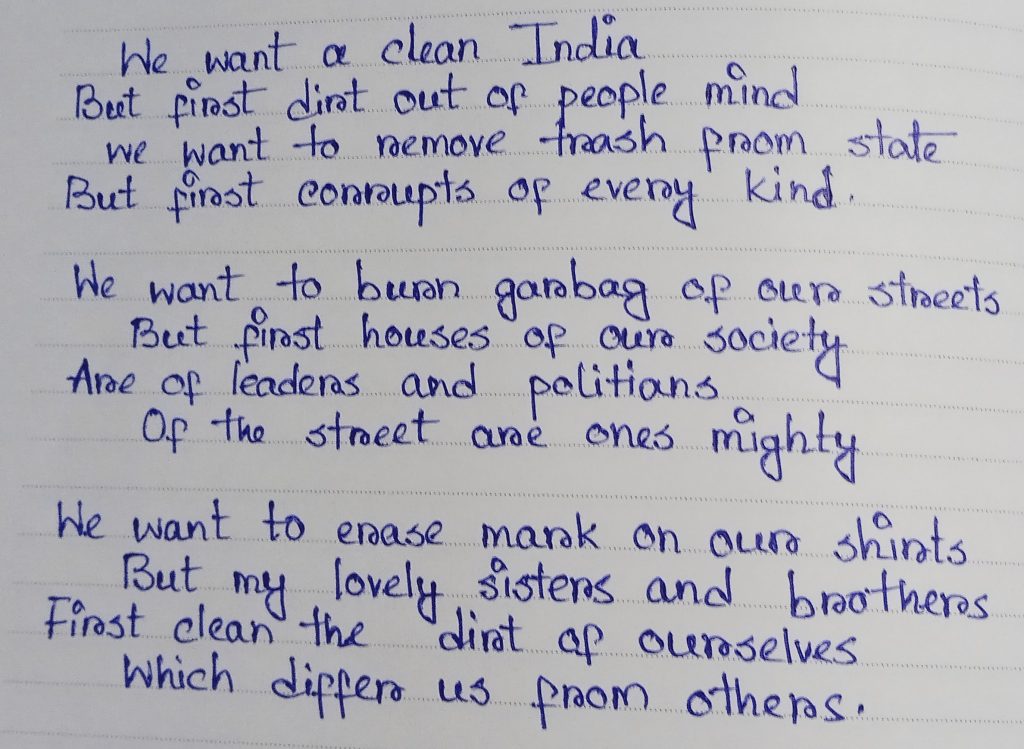 We want a clean India
But first dirt out of people mind
we want to remove trash from state
But first corrupts of every kind.
We want to burn garbag of our streets
But first houses of our society
Are of leaders and politians
Of the street are ones mighty
We want to erase mark on our shirts
But my lovely sisters and brothers
First clean the dirt of ourselves
Which differ us from others.